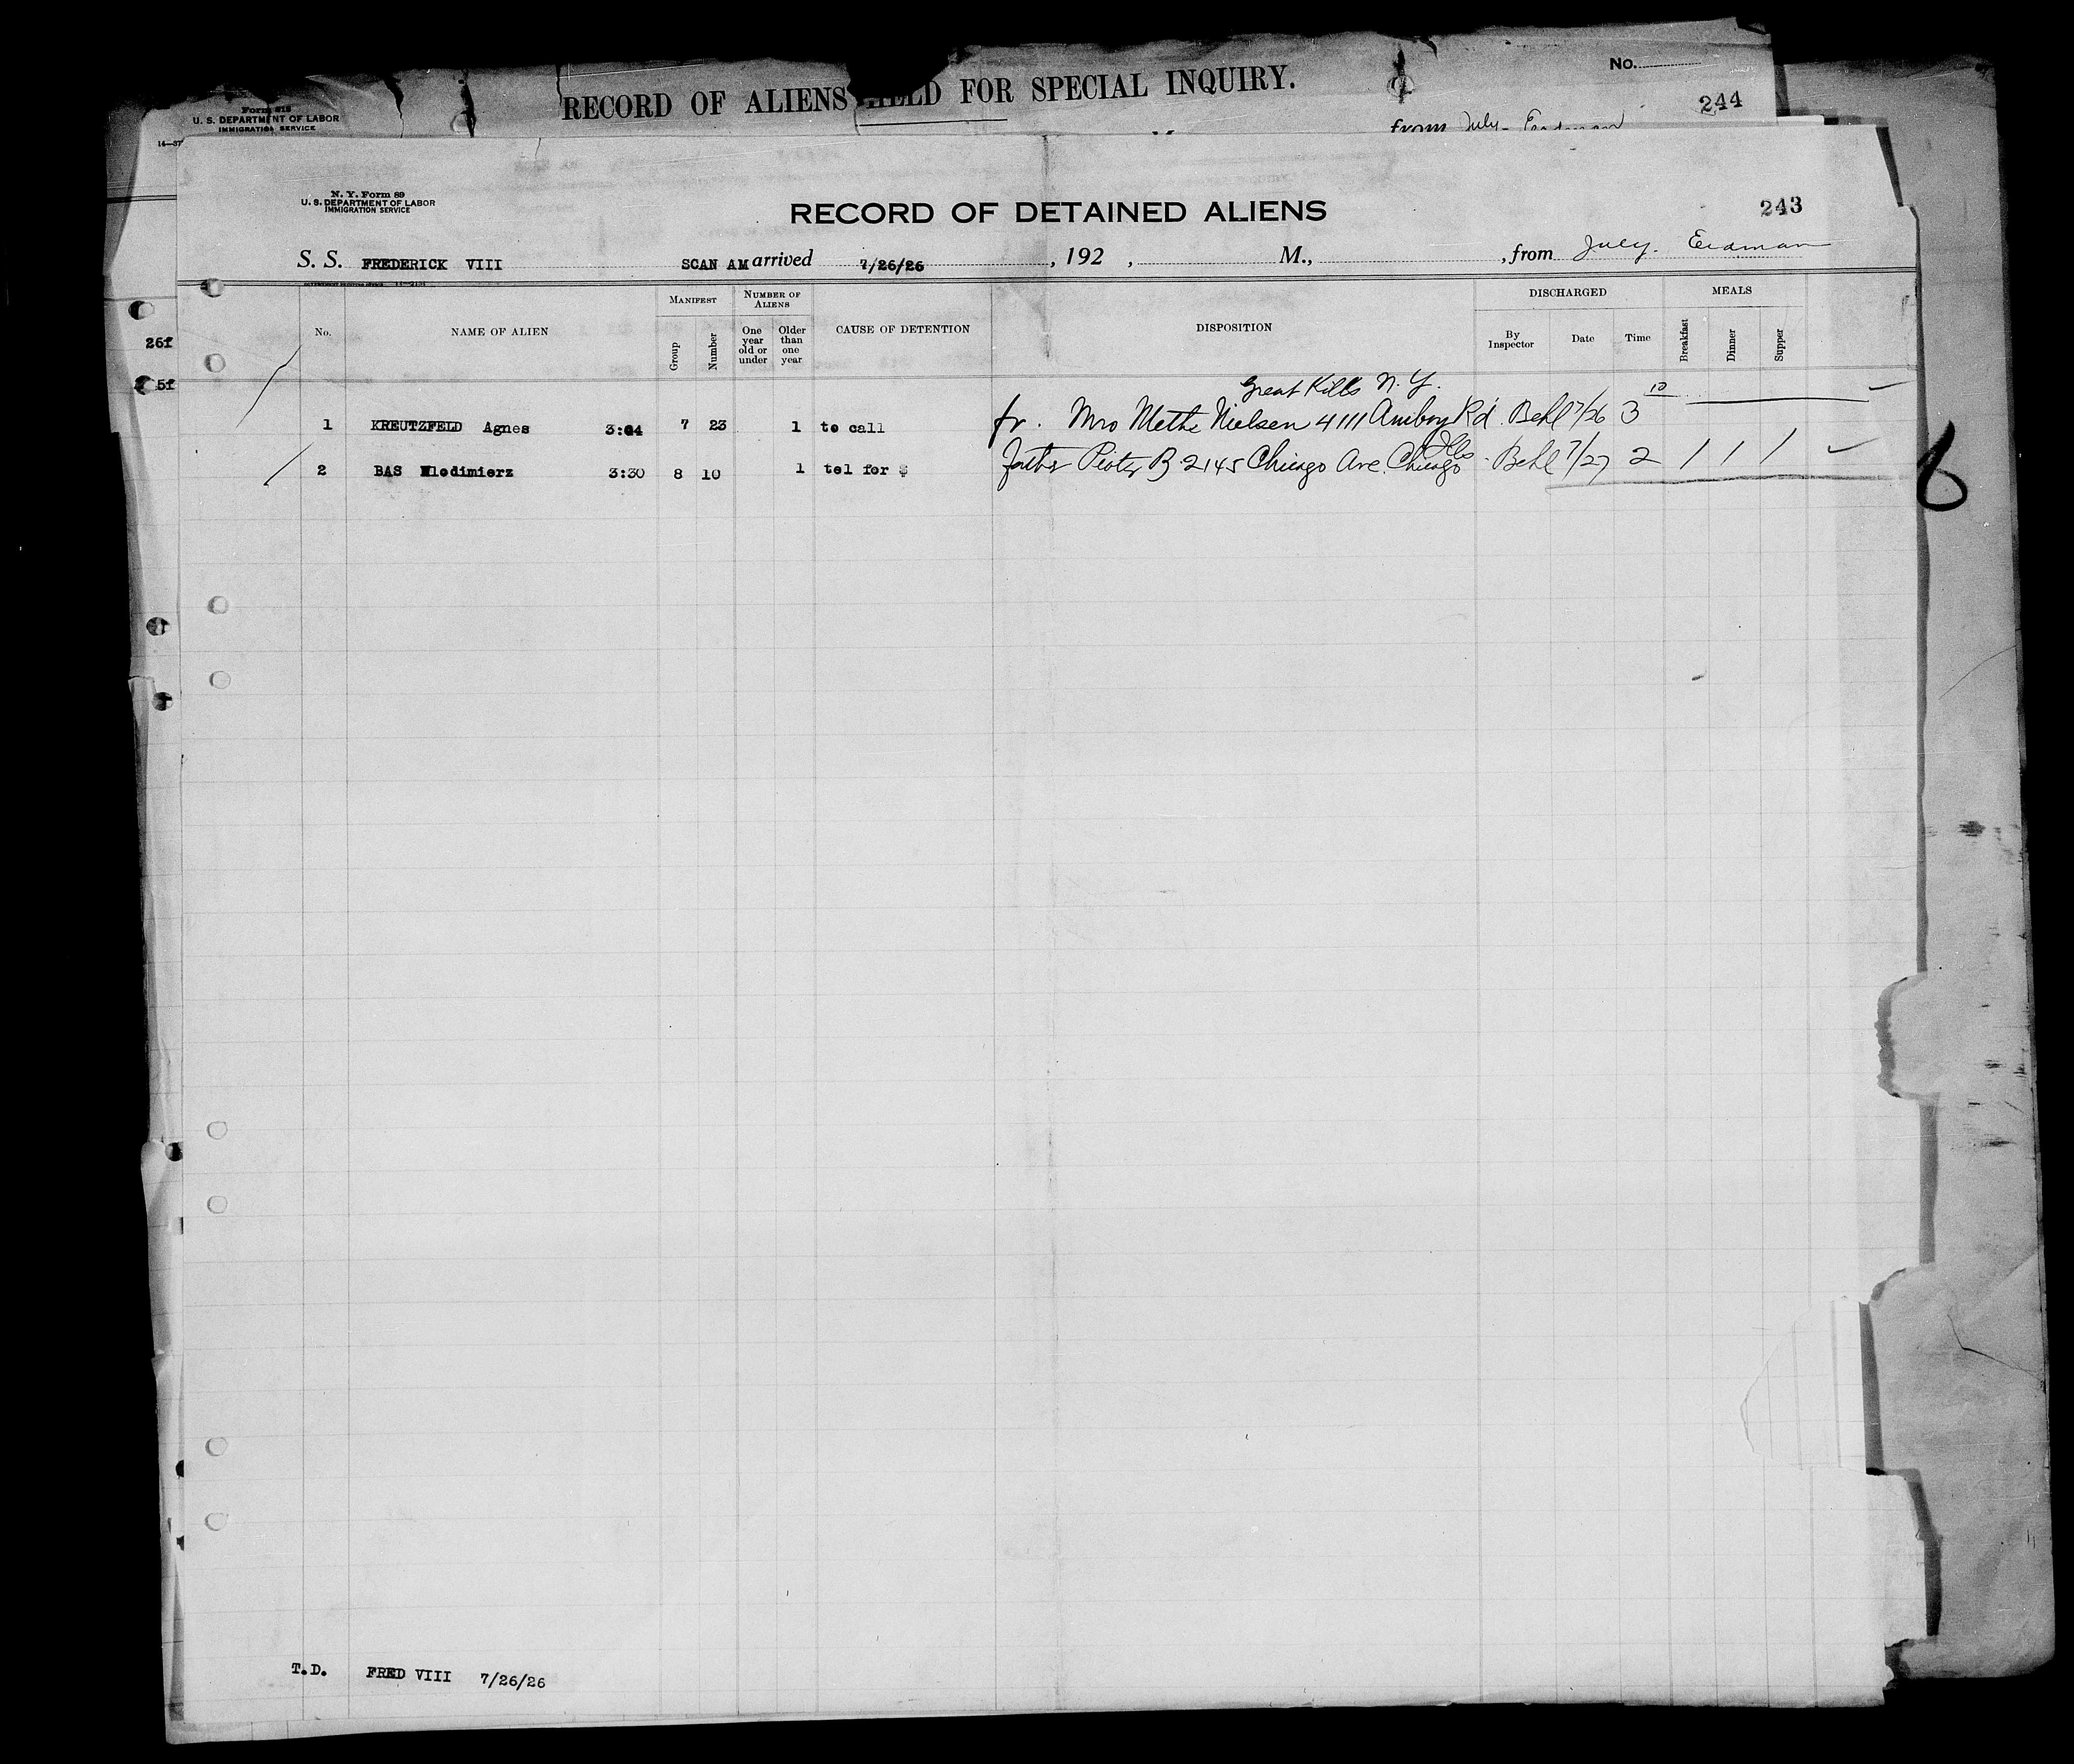 RECORD OF ALIENS HELD FOR SPECIAL INQUIRY.
No.
244
Form 618
U. S. DEPARTMENT OF LABOR
IMMIGRATION SERVICE
from July- Erdman
26f
5f
N. Y. Form 89
U. S. DEPARTMENT OF LABOR
IMMIGRATION SERVICE
RECORD OF DETAINED ALIENS
243
S. S. FREDERICK VIII SCAN AM arrived 7/26/26 , 192 , M., , from July. Erdman
No. NAME OF ALIEN MANIFEST Group Number NUMBER OF ALIENS One year old or under Older than one year CAUSE OF DETENTION DISPOSITION DISCHARGED By Inspector Date Time MEALS Breakfast Dinner Supper
Great Kills N. Y.
1 KREUTZFELD Agnes 3:04 7 23 1 to call fr. Mrs Methe Nielsen 4111 Amboy Rd. Behl 7/26 3 10
Ills
2 BAS Wlodimierz 3:30 8 10 1 tel for $ father Piotr B. 2145 Chicago Ave. Chicago - Behl 7/27 2 / / /
6
T.D. FRED VIII 7/26/26